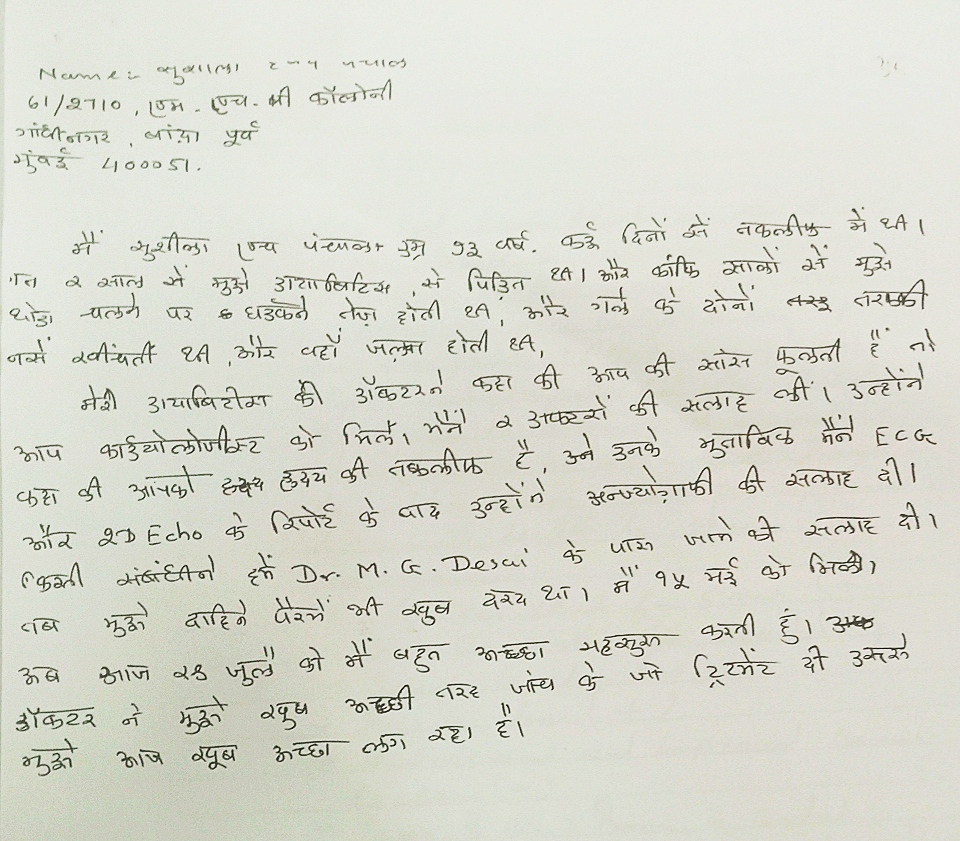 Name:- सुशीला एच पंचाल
61/2710, एम. एच. बी कॉलोनी
गांधीनगर, बांद्रा पूर्व
मुंबई 400051.
मैं सुशीला एच पंचाल उम्र ७३ वर्ष. कई दिनों सें तकलीफ में थी।
गत २ साल सें मुझे डायाबिटिस, से पिडित थी। और काफि सालों सें मुझे
थोड़ा चलने पर धडकने तेज़ होती थी, और गले के दोनों तरफकी
नसें खींचती थी, और वहाँ जलन होती थी,
मेरी डायाबिटीस की डॉक्टरने कहा की आप की साँस फूलती है तो
आप कार्डयोलोजीस्ट को मिलें। मैंने २ डाक्टरों की सलाह ली। उन्होंने
कहा की आपको हृदय की तकलीफ है, उनके मुताबिक मैंने ECG
और 2D Echo के रिपोर्ट के बाद उन्होंने अन्ज्योग्राफी की सलाह दी।
किसी संबंधीने हमें Dr. M. G. Desai के पास जाने की सलाह दी।
तब मुझे दाहिने पैरमें भी खुब दरद था। मैं १५ मई को मिली।
अब आज २४ जुलै को मैं बहुत अच्छा महसुस करती हुं।
डॉकटर ने मुझे खुब अच्छी तरह जांच के जो ट्रिटमेंट दी उससे
मुझे आज खूब अच्छा लग रहा है।